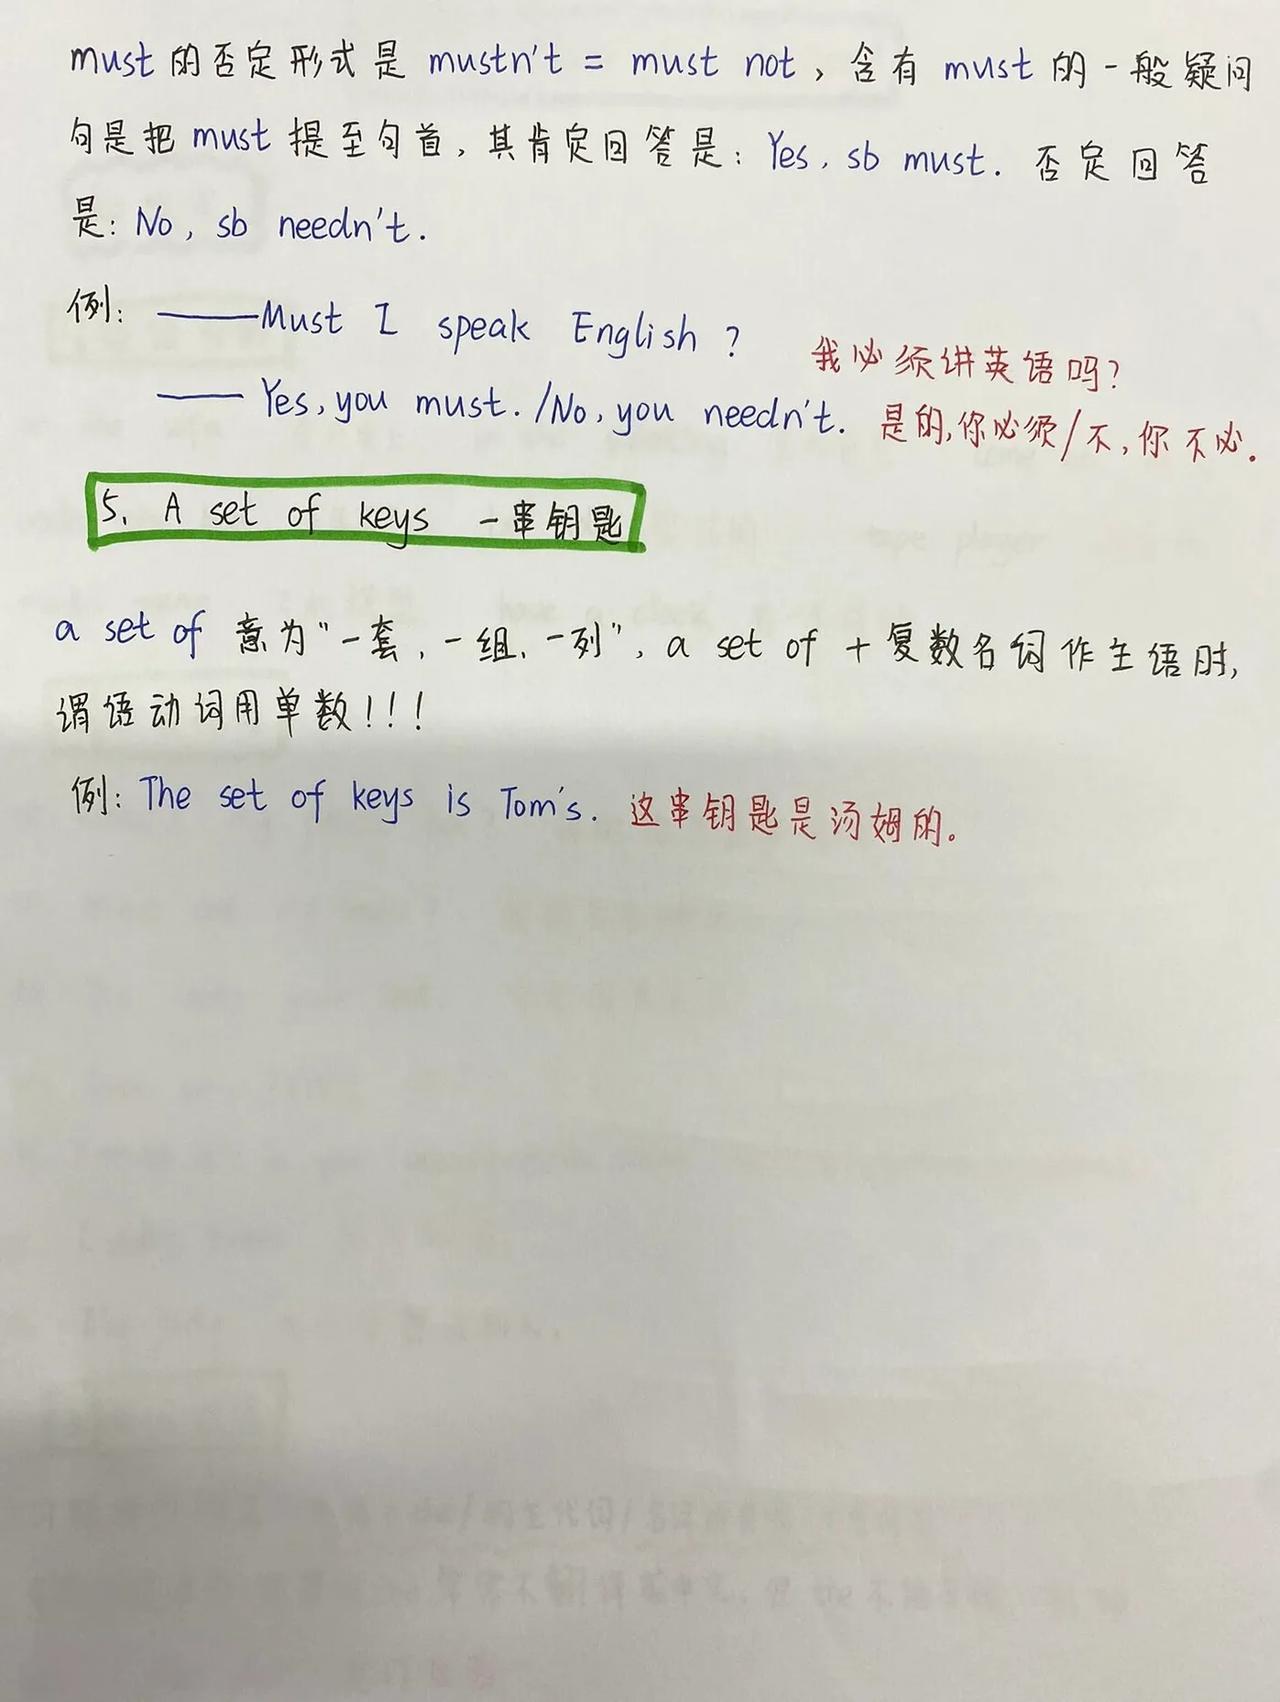 must 的否定形式是 mustn't = must not，含有 must 的一般疑问
句是把 must 提至句首，其肯定回答是：Yes，sb must. 否定回答
是：No，sb needn't.
例：——Must I speak English ? 我必须讲英语吗？
——Yes, you must. /No, you needn't. 是的,你必须/不,你不必.
5. A set of keys 一串钥匙
a set of 意为"一套，一组，一列"，a set of + 复数名词作主语时，
谓语动词用单数!!!
例：The set of keys is Tom's. 这串钥匙是汤姆的。